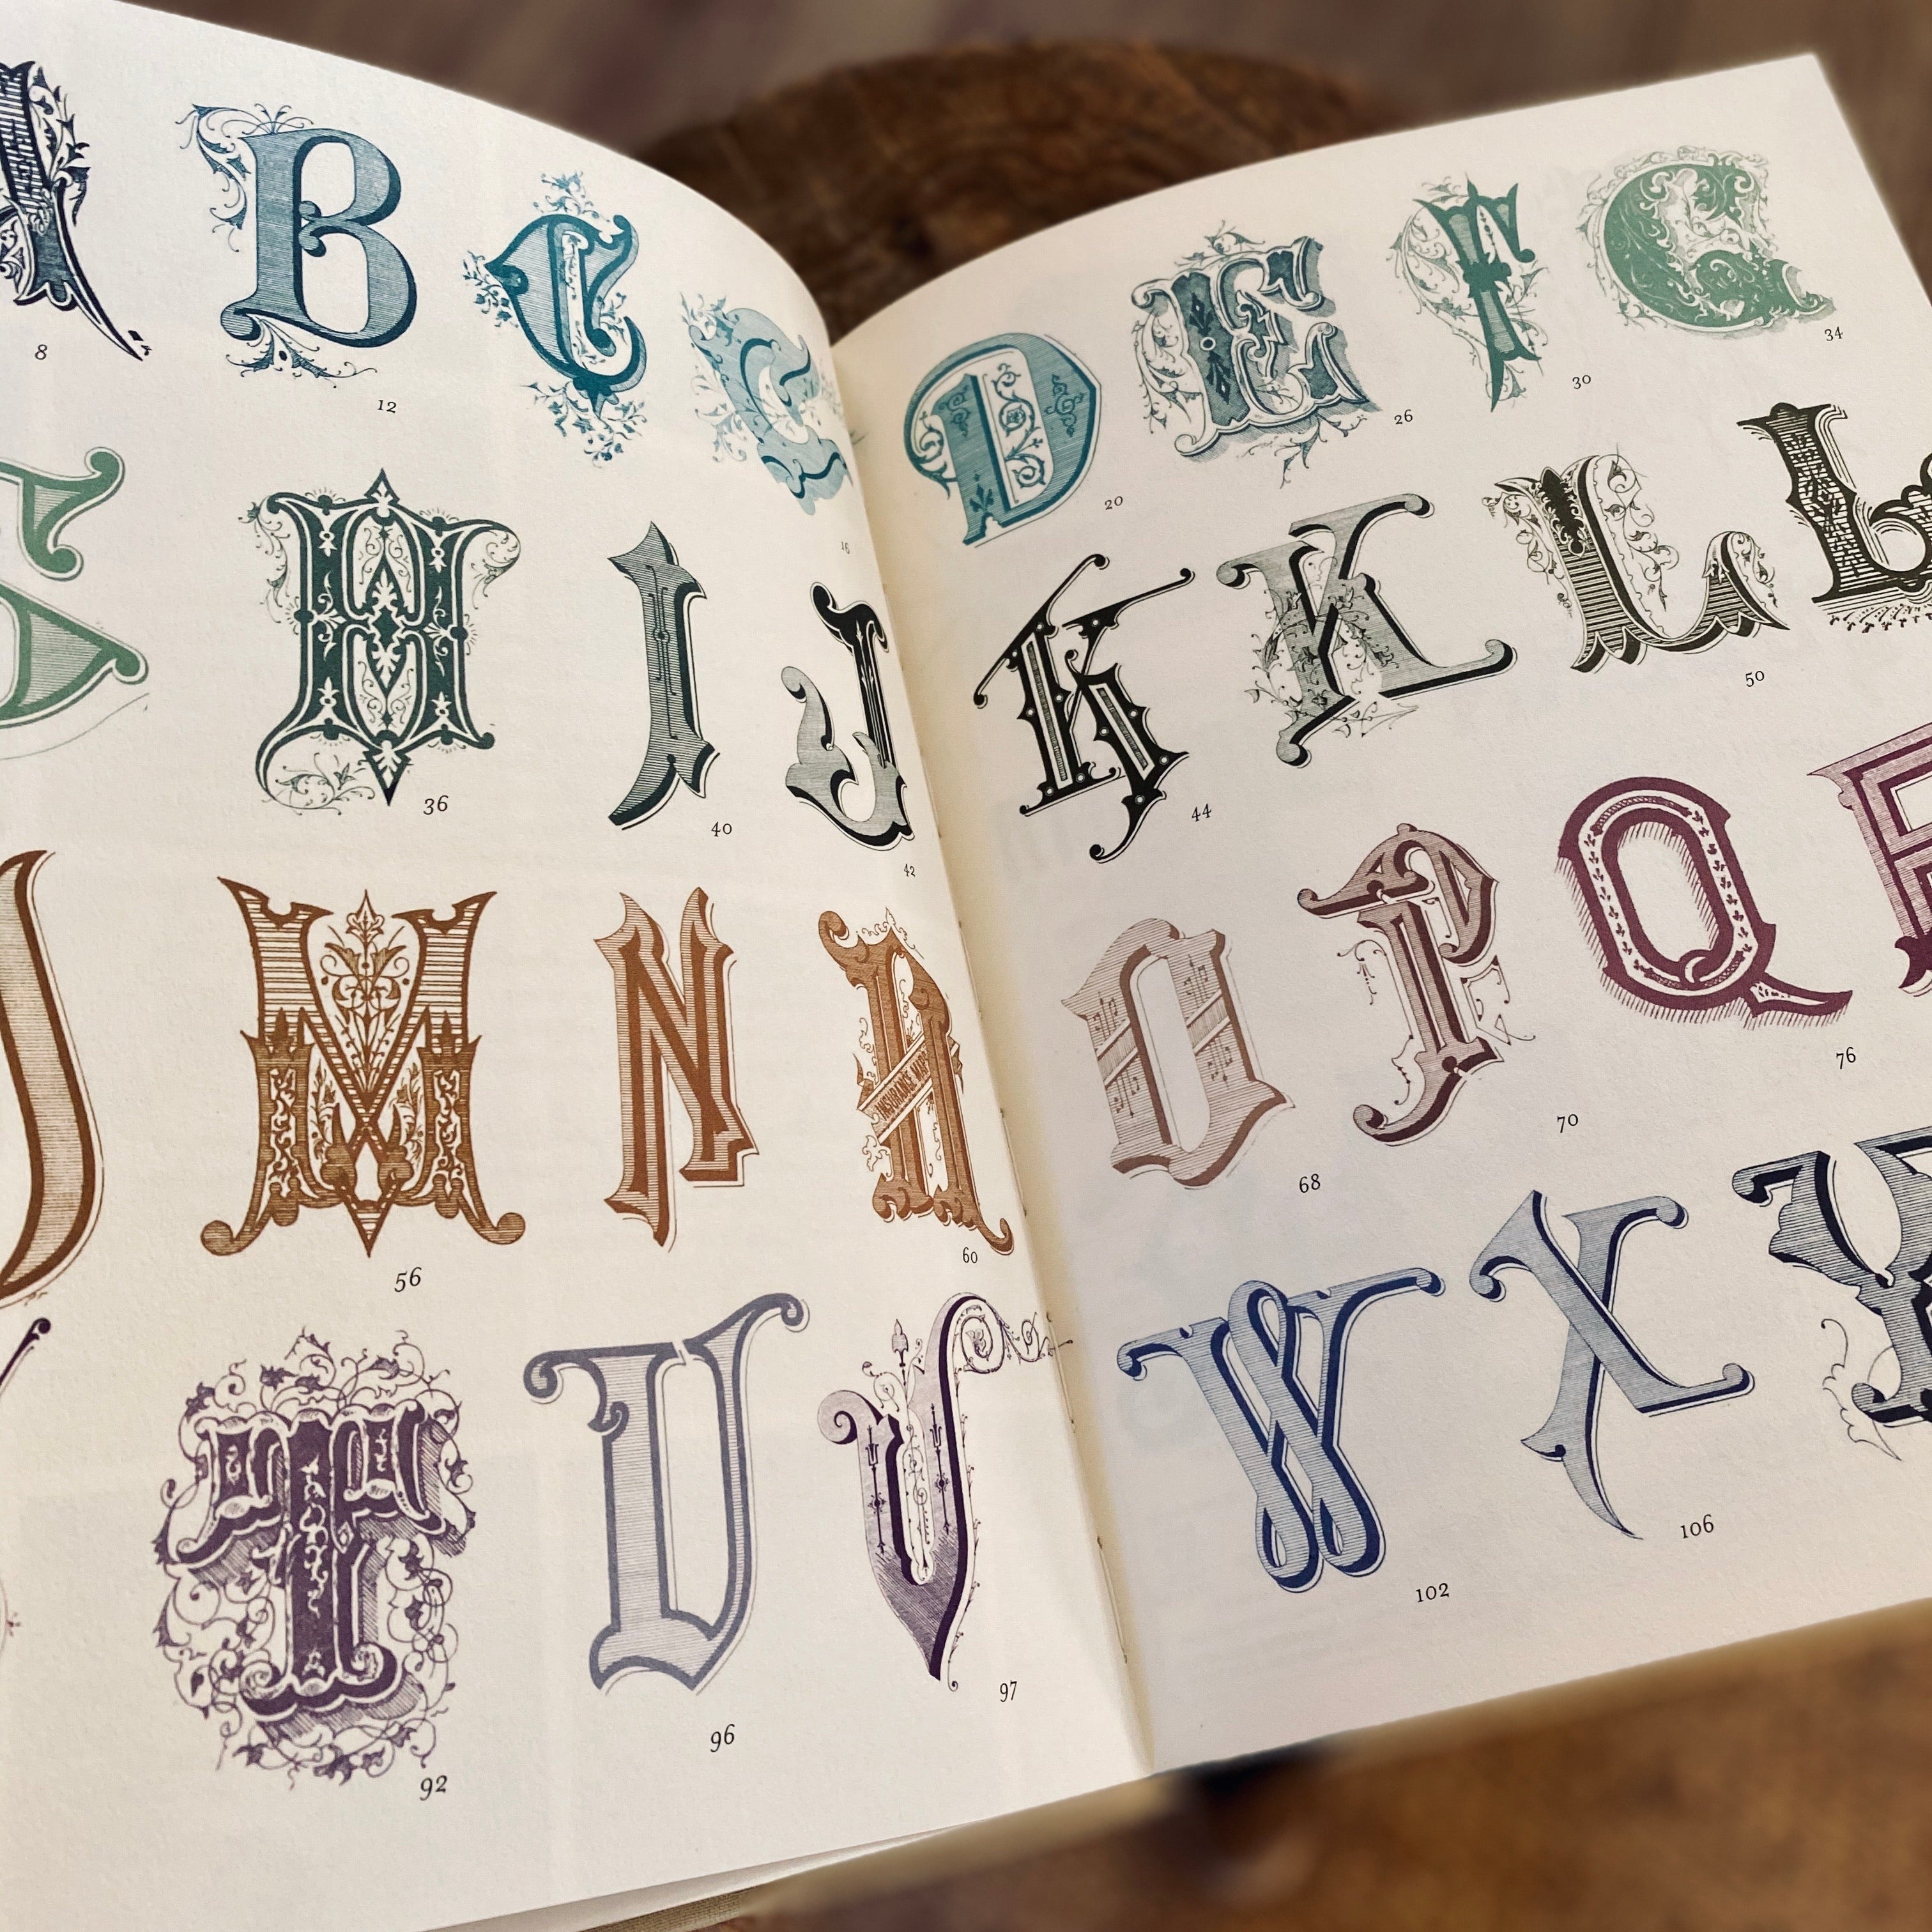 A B C C D E F G
8 12 16 20 26 30 34
G H I J K K L L
36 40 42 44 50
M N A O P Q R
INSURANCE MAPS
56 60 68 70 76
T U V W X Y
92 96 97 102 106